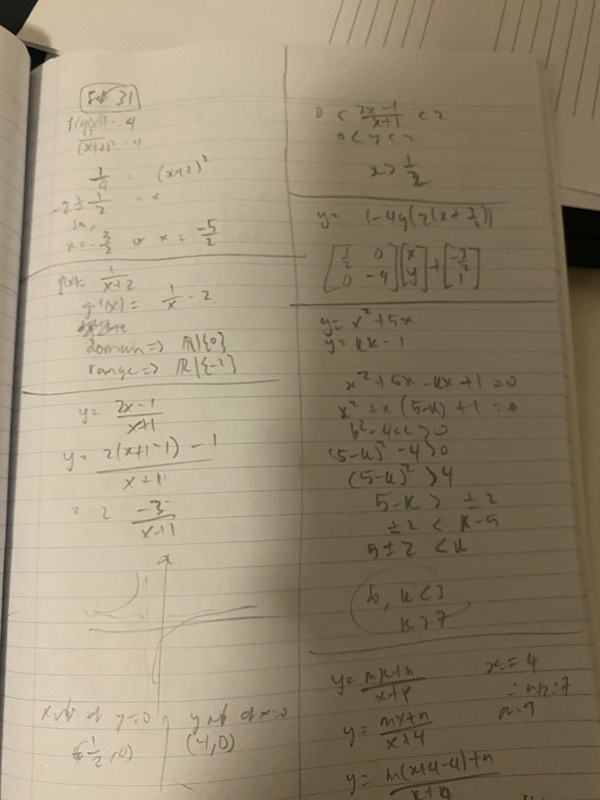 31
1/4 = (x+2)²
-2 ± 1/2 = x
x = -3/2 or x = -5/2
g(x) = 1/(x+2)
g⁻¹(x) = 1/x - 2
domain => ℝ\{0}
range => ℝ\{-2}
y = (2x-1)/(x+1)
y = (2(x+1-1) - 1)/(x+1)
= 2 -3/(x+1)
x at y=0
y at x=0
(1/2, 0)
0 < (2x-1)/(x+1) < 2
0 < y < 2
x > 1/2
y = 1-4g(2(x+3/2))
[1/2 0; 0 -4] [x; y] + [-3/2; 1]
y = x² + 5x
y = kx - 1
x² + 5x - kx + 1 = 0
x² + x(5-k) + 1 = 0
b² - 4ac > 0
(5-k)² - 4 > 0
(5-k)² > 4
5-k > ±2
±2 < k-5
5±2 < k
so, k < 3
k > 7
y = (mx+n)/(x+p)
x = 4
y = (mx+n)/(x+4)
y = (m(x+4-4)+n)/(x+4)